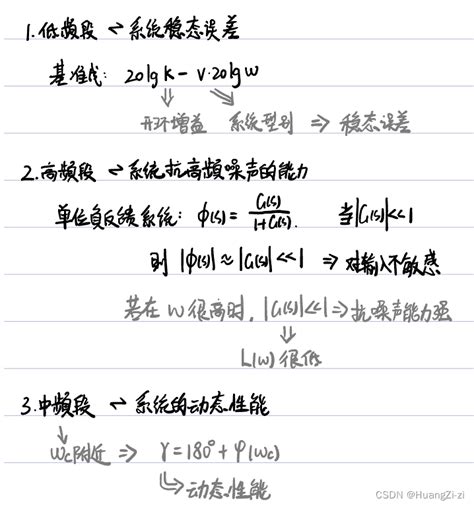 1.低频段 ⇌ 系统稳态误差
基准线: 20lgk - v·20lgw
⇓ ⇘
开环增益 系统型别 ⇒ 稳态误差
2.高频段 ⇌ 系统抗高频噪声的能力
单位负反馈系统: φ(s) = G(s)/(1+G(s)). 当|G(s)|<<1
则 |φ(s)| ≈ |G(s)| <<1 ⇒ 对输入不敏感
若在 w 很高时, |G(s)|<<1 ⇒ 抗噪声能力强
⇓
L(w) 很低
3.中频段 ⇌ 系统的动态性能
↓
wc附近 ⇒ γ = 180° + φ(wc)
↳ 动态性能
CSDN @HuangZi-zi